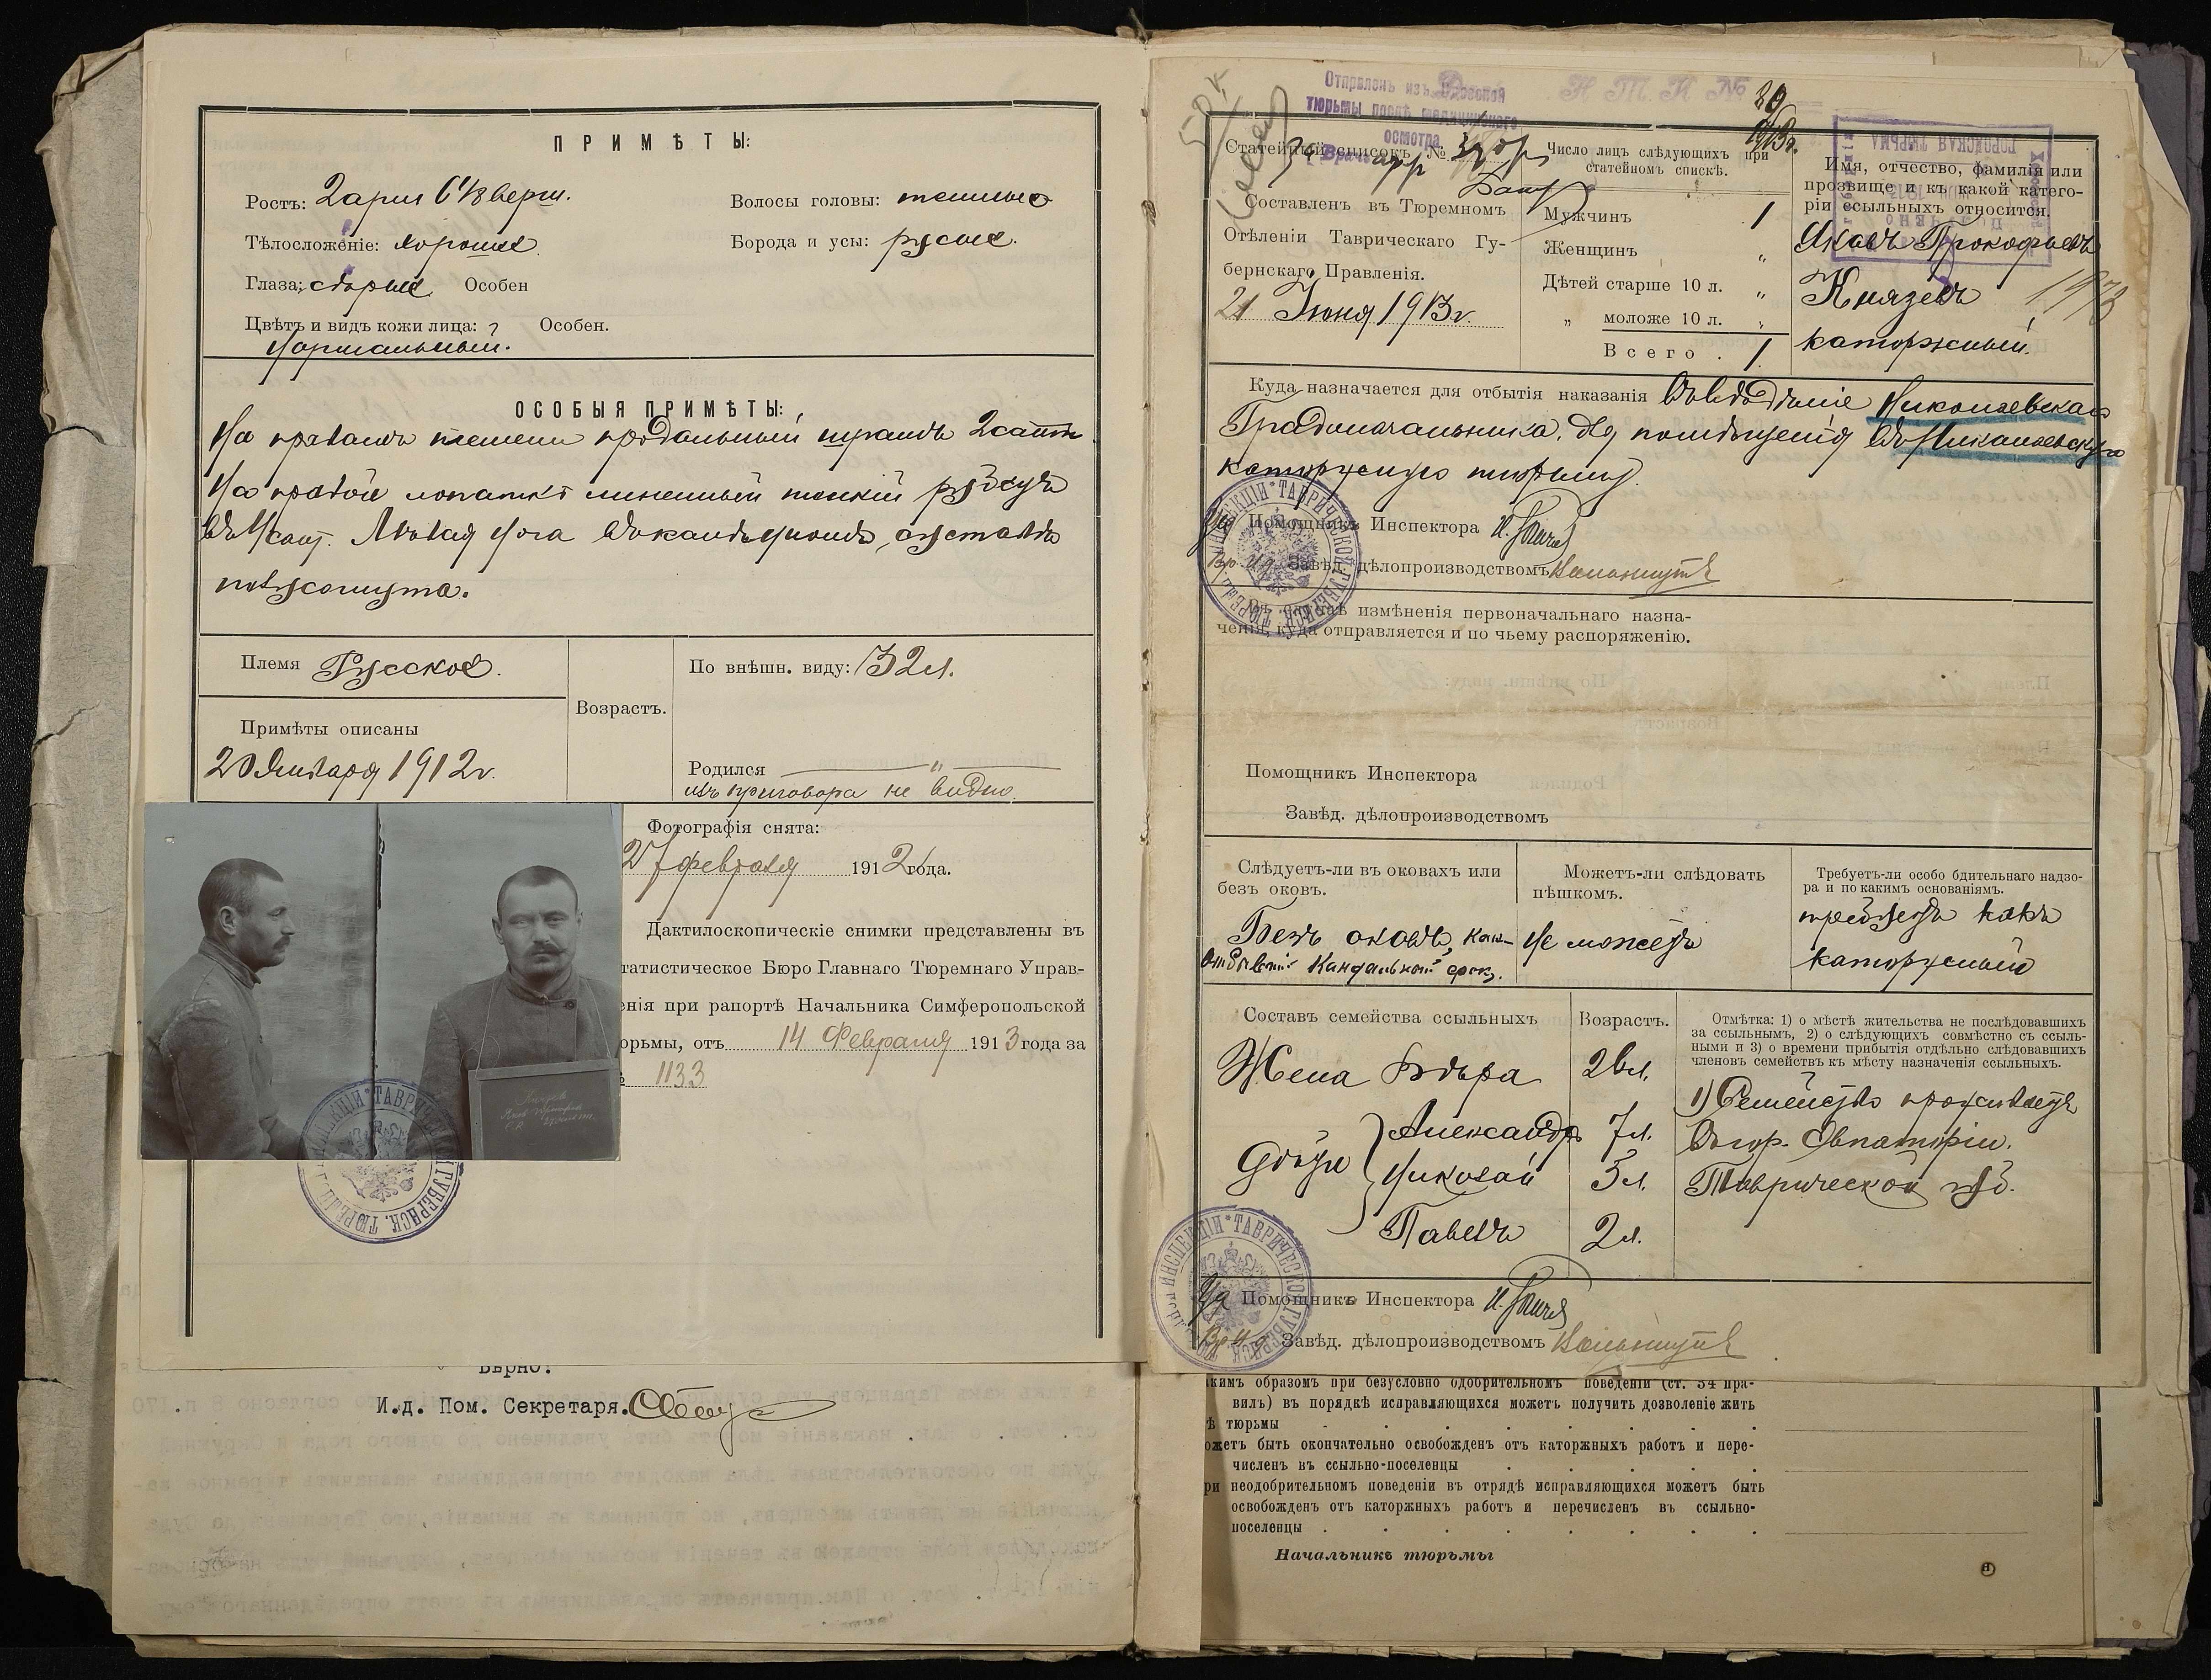 ПРИМѢТЫ:
Ростъ: 2 арш 6 1/8 верш.
Волосы головы: темные
Тѣлосложеніе: хорошее.
Борода и усы: русые.
Глаза: сѣрые Особен
Цвѣтъ и видъ кожи лица: Особен.
нормальный.
ОСОБЫЯ ПРИМѢТЫ:
На правомъ темени продольный шрамъ 2 сант
На правой лопаткѣ линейный тонкій рубецъ
въ сант. Лѣвая нога въ суставѣ
несогнута.
Племя Русское.
Примѣты описаны
20 Января 1912 г.
Возрастъ.
По внѣшн. виду: 32 л.
Родился "
изъ приговора не видно.
Фотографія снята:
27 февраля 1912 года.
Дактилоскопическіе снимки представлены въ
татистическое Бюро Главнаго Тюремнаго Управ-
енія при рапортѣ Начальника Симферопольской
юрьмы, отъ 14 Февраля 1913 года за
1133
Вѣрно:
И.д. Пом. Секретаря.
Отправленъ изъ Одесской
тюрьмы послѣ медицинскаго
осмотра
Врачъ
Н Т. К №
Статейный списокъ №
Составленъ въ Тюремномъ
Отѣленіи Таврическаго Гу-
бернскаго Правленія.
21 Іюня 1913 г.
Число лицъ слѣдующихъ при
статейномъ спискѣ.
Мужчинъ 1
Женщинъ "
Дѣтей старше 10 л. "
" моложе 10 л. "
Всего . 1.
Имя, отчество, фамилія или
прозвище и къ какой катего-
ріи ссыльныхъ относится.
Яковъ Прокофьевъ
Князевъ
каторжный.
Куда назначается для отбытія наказанія Въ вѣдѣніе Николаевскаго
Градоначальника, для помѣщенія въ Николаевскую
каторжную тюрьму.
Помощникъ Инспектора
Завѣд. дѣлопроизводствомъ
Въ случаѣ измѣненія первоначальнаго назна-
ченія, куда отправляется и по чьему распоряженію.
Помощникъ Инспектора
Завѣд. дѣлопроизводствомъ
Слѣдуетъ-ли въ оковахъ или
безъ оковъ.
Безъ оковъ, как
отбывшій кандальный срок.
Можетъ-ли слѣдовать
пѣшкомъ.
Не можетъ
Требуетъ-ли особо бдительнаго надзо-
ра и по какимъ основаніямъ.
требуетъ какъ
каторжный
Составъ семейства ссыльныхъ
Возрастъ.
Отмѣтка: 1) о мѣстѣ жительства не послѣдовавшихъ
за ссыльнымъ, 2) о слѣдующихъ совмѣстно съ ссыль-
ными и 3) о времени прибытія отдѣльно слѣдовавшихъ
членовъ семействъ къ мѣсту назначенія ссыльныхъ.
Жена Вѣра 26 л.
Дѣти
Александръ 7 л.
Николай 5 л.
Павелъ 2 л.
1) Семейство проживаетъ
въ гор. Евпаторіи.
Таврической губ.
Помощникъ Инспектора
Завѣд. дѣлопроизводствомъ
кимъ образомъ при безусловно одобрительномъ поведеніи (ст. 54 пра-
вилъ) въ порядкѣ исправляющихся можетъ получить дозволеніе жить
ѣ тюрьмы
ожетъ быть окончательно освобожденъ отъ каторжныхъ работъ и пере-
численъ въ ссыльно-поселенцы
ри неодобрительномъ поведеніи въ отрядѣ исправляющихся можетъ быть
освобожденъ отъ каторжныхъ работъ и перечисленъ въ ссыльно-
поселенцы
Начальникъ тюрьмы